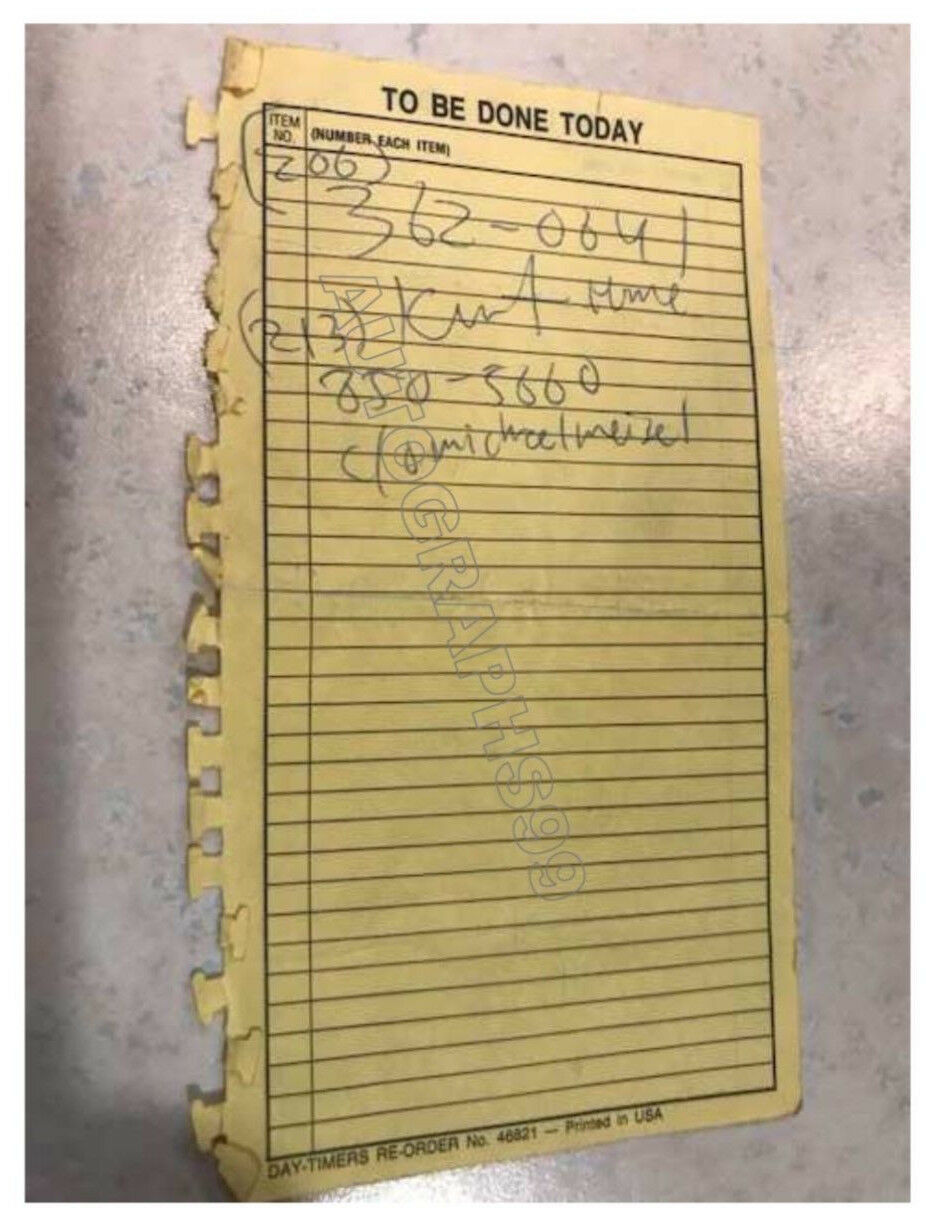 TO BE DONE TODAY
ITEM NO. (NUMBER EACH ITEM)
(206)
362-0641
Kurt Home
(213)
850-5660
c/o michael meisel
AUT@GRAPHS99
DAY-TIMERS RE-ORDER No. 46821 — Printed in USA